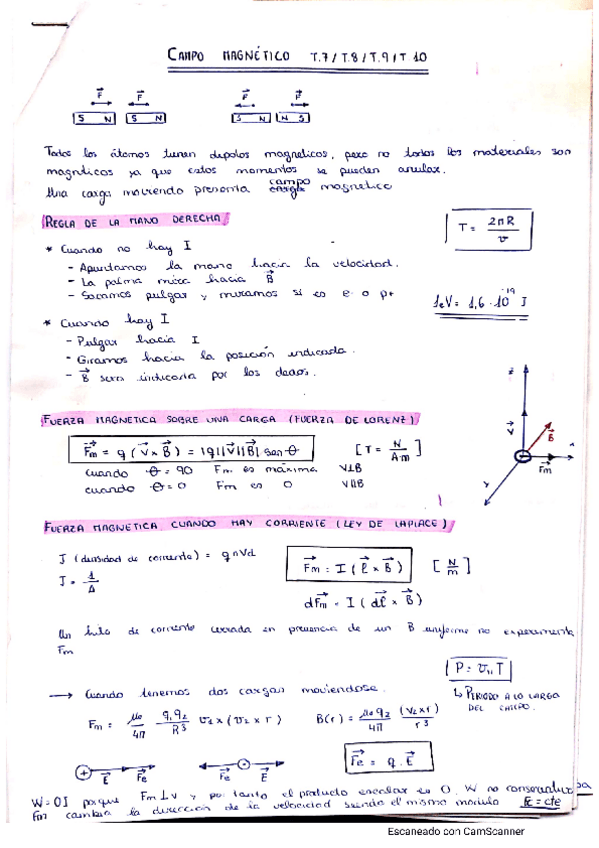 CAMPO MAGNÉTICO T.7/T.8/T.9/T.10
F F F F
S N S N S N N S
Todos los átomos tienen dipolos magneticos, pero no todos los materiales son
magnéticos ya que estos momentos se pueden anular.
Una carga moviendo presenta campo magnetico
REGLA DE LA MANO DERECHA
T = 2πR / v
* Cuando no hay I
- Apuntamos la mano hacia la velocidad.
- La palma mira hacia B
- Sacamos pulgar y miramos si es e- o p+
1eV = 1,6 · 10^-19 J
* Cuando hay I
- Pulgar hacia I
- Giramos hacia la posición indicada.
- B sera indicada por los dedos.
z
V B
x
Fm
y
FUERZA MAGNETICA SOBRE UNA CARGA (FUERZA DE LORENZ)
Fm = q (v x B) = |q||v||B| sen θ [T = N / A·m]
cuando θ = 90 Fm es máxima V⊥B
cuando θ = 0 Fm es 0 V||B
FUERZA MAGNETICA CUANDO HAY CORRIENTE (LEY DE LAPLACE)
J (densidad de corriente) = qnVd
Fm = I (ℓ x B) [N/m]
dFm = I (dℓ x B)
Un hilo de corriente cerrada en presencia de un B uniforme no experimenta
Fm
P = v|| T
→ Cuando tenemos dos cargas moviendose.
↳ PERIODO A LO LARGO
DEL CAMPO.
Fm = μ0/4π q1q2/R³ v1 x (v2 x r) B(r) = μ0 q2/4π (v2 x r)/r³
Fe = q · E
+ E Fe Fe - E
W = 0J porque Fm⊥v y por tanto el producto escalar es 0. W no conservativa
Fm cambia la dirección de la velocidad siendo el mismo modulo Ec = cte
Escaneado con CamScanner